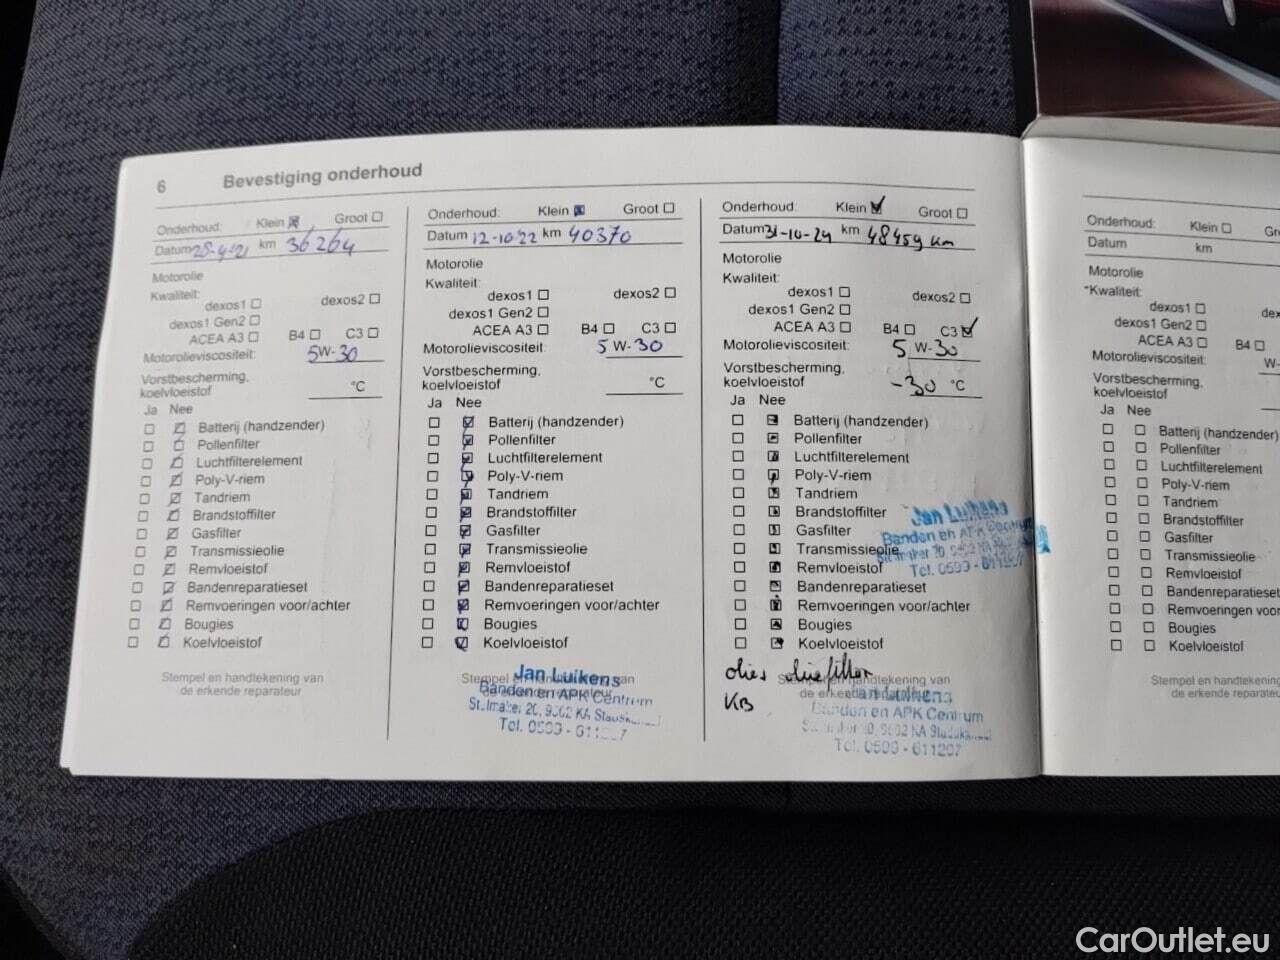 6 Bevestiging onderhoud
Onderhoud: Klein Groot
Datum 28-4-21 km 36264
Motorolie
Kwaliteit:
dexos1 dexos2
dexos1 Gen2
ACEA A3 B4 C3
Motorolieviscositeit: 5 W-30
Vorstbescherming,
koelvloeistof °C
Ja Nee
Batterij (handzender)
Pollenfilter
Luchtfilterelement
Poly-V-riem
Tandriem
Brandstoffilter
Gasfilter
Transmissieolie
Remvloeistof
Bandenreparatieset
Remvoeringen voor/achter
Bougies
Koelvloeistof
Stempel en handtekening van
de erkende reparateur
Onderhoud: Klein Groot
Datum 12-10-22 km 40370
Motorolie
Kwaliteit:
dexos1 dexos2
dexos1 Gen2
ACEA A3 B4 C3
Motorolieviscositeit: 5 W-30
Vorstbescherming,
koelvloeistof °C
Ja Nee
Batterij (handzender)
Pollenfilter
Luchtfilterelement
Poly-V-riem
Tandriem
Brandstoffilter
Gasfilter
Transmissieolie
Remvloeistof
Bandenreparatieset
Remvoeringen voor/achter
Bougies
Koelvloeistof
Stempel en handtekening van
de erkende reparateur
Jan Luikens
Banden en APK Centrum
Tel. 0599 - 
Onderhoud: Klein Groot
Datum 31-10-24 km 48459 km
Motorolie
Kwaliteit:
dexos1 dexos2
dexos1 Gen2
ACEA A3 B4 C3
Motorolieviscositeit: 5 W-30
Vorstbescherming,
koelvloeistof -30 °C
Ja Nee
Batterij (handzender)
Pollenfilter
Luchtfilterelement
Poly-V-riem
Tandriem
Brandstoffilter
Gasfilter
Transmissieolie
Remvloeistof
Bandenreparatieset
Remvoeringen voor/achter
Bougies
Koelvloeistof
Jan Luikens
Banden en APK Centrum
Tel. 0599 - 611207
oliefilter
KB
Stempel en handtekening van
de erkende
Jan Luikens
Banden en APK Centrum
Tel. 0599 - 611207
Onderhoud: Klein
Datum km
Motorolie
Kwaliteit:
dexos1
dexos1 Gen2
ACEA A3 B4
Motorolieviscositeit: W-
Vorstbescherming,
koelvloeistof
Ja Nee
Batterij (handzender)
Pollenfilter
Luchtfilterelement
Poly-V-riem
Tandriem
Brandstoffilter
Gasfilter
Transmissieolie
Remvloeistof
Bandenreparatieset
Remvoeringen voor/
Bougies
Koelvloeistof
Stempel en handtekening
de erkende reparateur
CarOutlet.eu